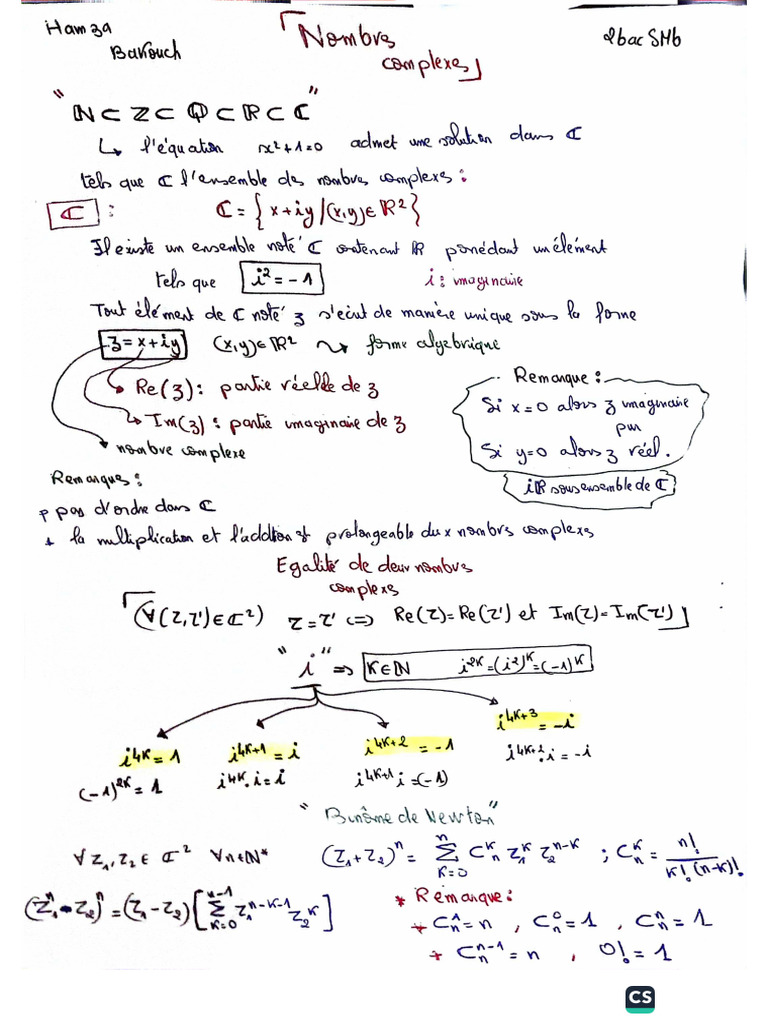 Hamza
Barouch
Nombrs
complexes
2bac SMb
" ℕ ⊂ ℤ ⊂ ℚ ⊂ ℝ ⊂ ℂ "
↳ l'équation x²+1=0 admet une solution dans ℂ
tels que ℂ l'ensemble des nombres complexes :
ℂ : ℂ = { x+iy /(x,y) ∈ ℝ² }
Il existe un ensemble noté ℂ contenant ℝ ponédant un élément
tels que i² = -1 i : imaginaire
Tout élément de ℂ noté z s'écrit de manière unique sous la forme
z = x+iy (x,y) ∈ ℝ² ↝ forme algebrique
Re(z) : partie réelde de z
Im(z) : partie imaginaire de z
nombre complexe
Remarque :
Si x=0 alors z imaginaire
pur
Si y=0 alors z réel.
iℝ sous ensemble de ℂ
Remarques :
pas d'ordre dans ℂ
+ la multiplication et l'addtion st prolongeable dux nombrs complexes
Egalité de deux nombrs
complexes
(∀(Z,Z')∈ℂ²) Z=Z' <=> Re(Z)=Re(Z') et Im(Z)=Im(Z')
" i " => K∈ℕ i^2K=(i²)^K=(-1)^K
i^4K = 1 i^4K+1 = i i^4K+2 = -1 i^4K+3 = -i
(-1)^2K = 1 i^4K . i = i i^4K+1 i = (-1) i^4K+2 . i = -i
" Binôme de Newton "
∀ Z₁,Z₂ ∈ ℂ² ∀n∈ℕ* (Z₁+Z₂)^n = Σ_{K=0}^{n} C_n^K Z₁^K Z₂^n-K ; C_n^K = n! / K!(n-K)!
(Z₁^n - Z₂^n) = (Z₁-Z₂) [ Σ_{K=0}^{n-1} Z₁^n-K-1 Z₂^K ]
* Remarque :
* C_n^1 = n , C_n^0 = 1 , C_n^n = 1
* C_n^n-1 = n , 0! = 1
CS